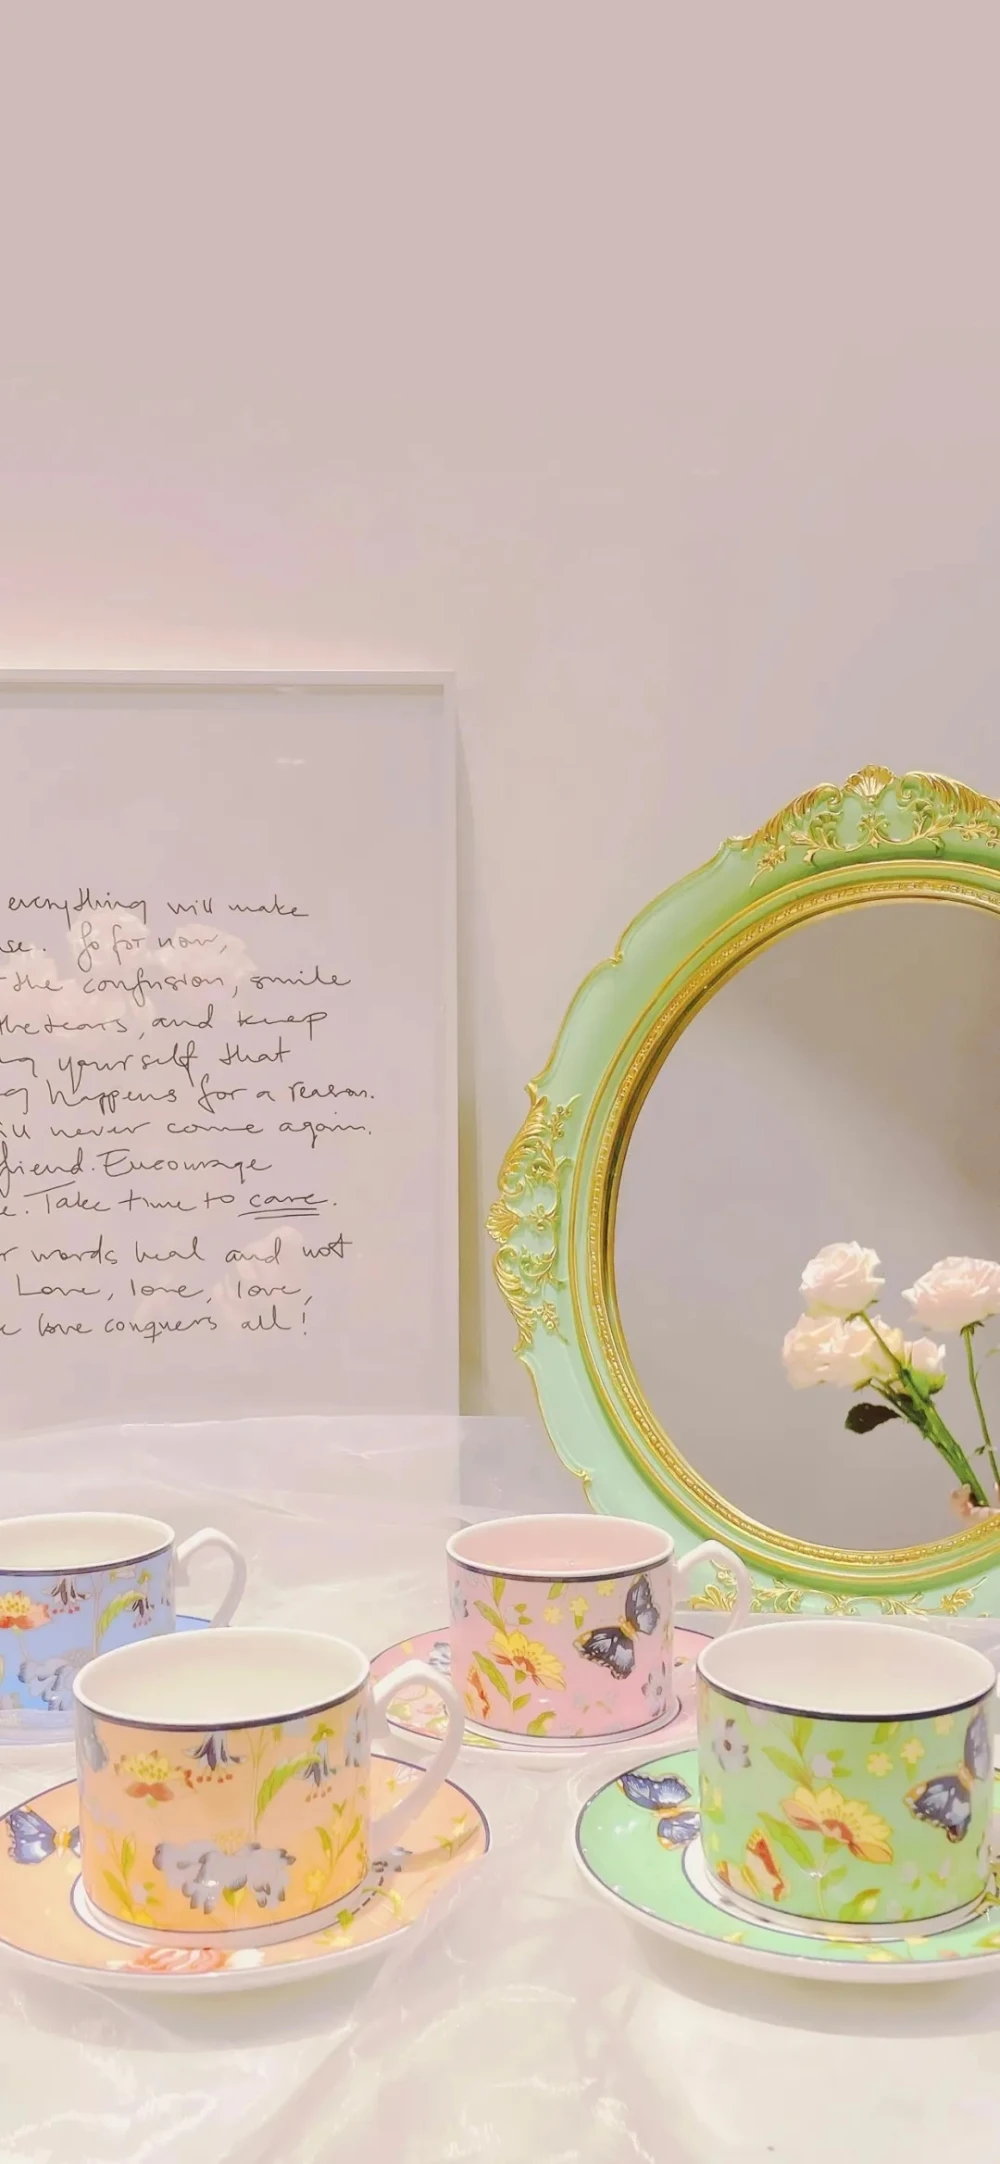 everything will make
se. So for now,
the confusion, smile
the tears, and keep
ng yourself that
g happens for a reason.
ill never come again.
friend. Encourage
e. Take time to care.
r words heal and not
Love, love, love,
e love conquers all!